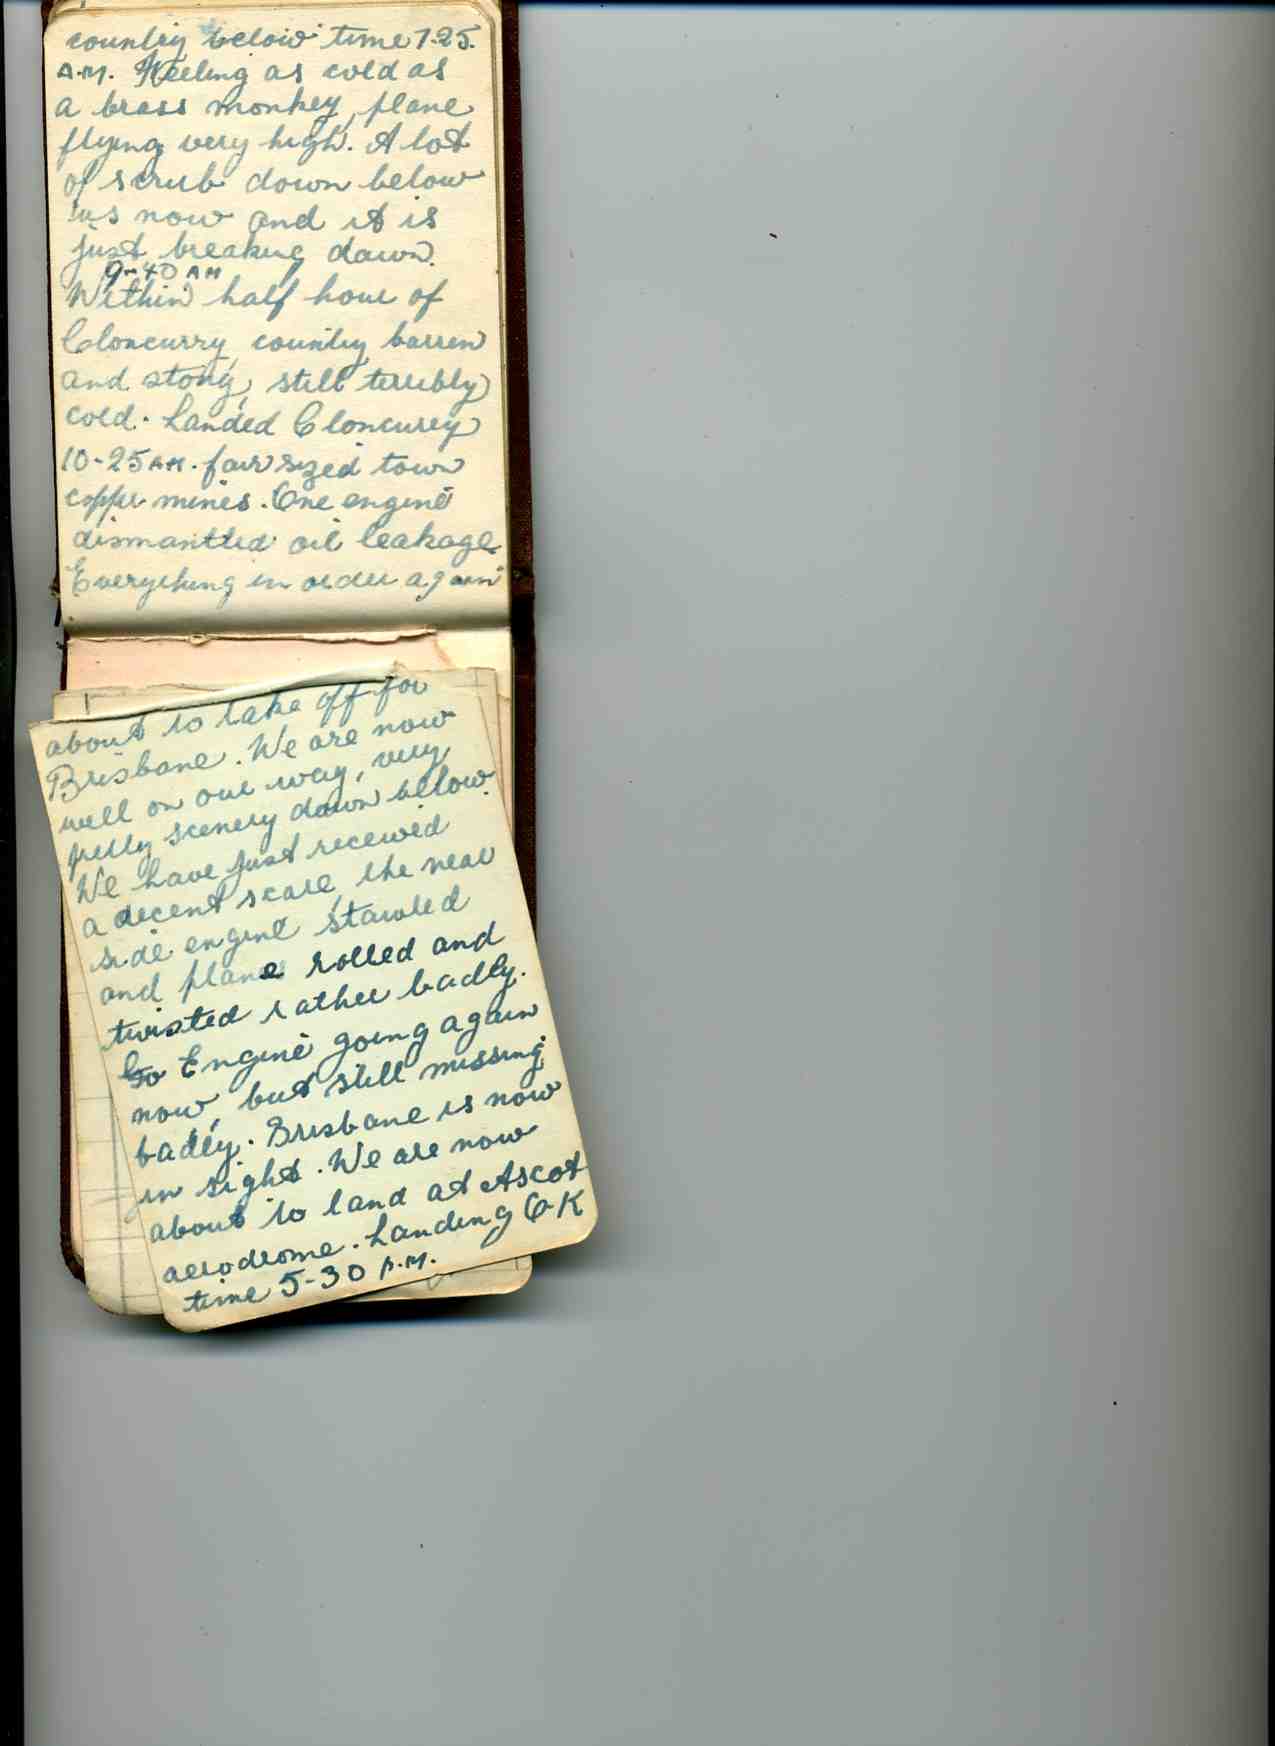 country below time 7-25.
A.M. Feeling as cold as
a brass monkey, plane
flying very high. A lot
of scrub down below
us now and it is
just breaking dawn.
9-40 AM
Within half hour of
Cloncurry, country barren
and stony, still terribly
cold. Landed Cloncurry
10-25 AM. fair sized town
copper mines. One engine
dismantled oil leakage
Everything in order again
about to take off for
Brisbane. We are now
well on our way, very
pretty scenery down below.
We have just received
a decent scare, the near
side engine stawled
and plane rolled and
twisted rather badly.
Engine going again
now, but still missing
badly. Brisbane is now
in sight. We are now
about to land at Ascot
aerodrome. Landing OK
time 5-30 P.M.